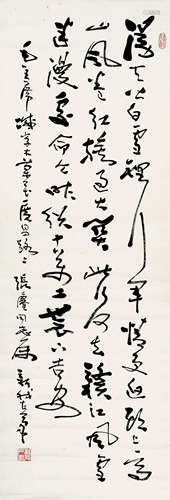 漫天皆白雪裡行軍情更迫頭上高
山風卷紅旗過大関此行何去贛江風雪
迷漫處命令昨頒十萬工農下吉安
毛主席减字木蘭花廣昌路上 張 同志屬 新我左筆